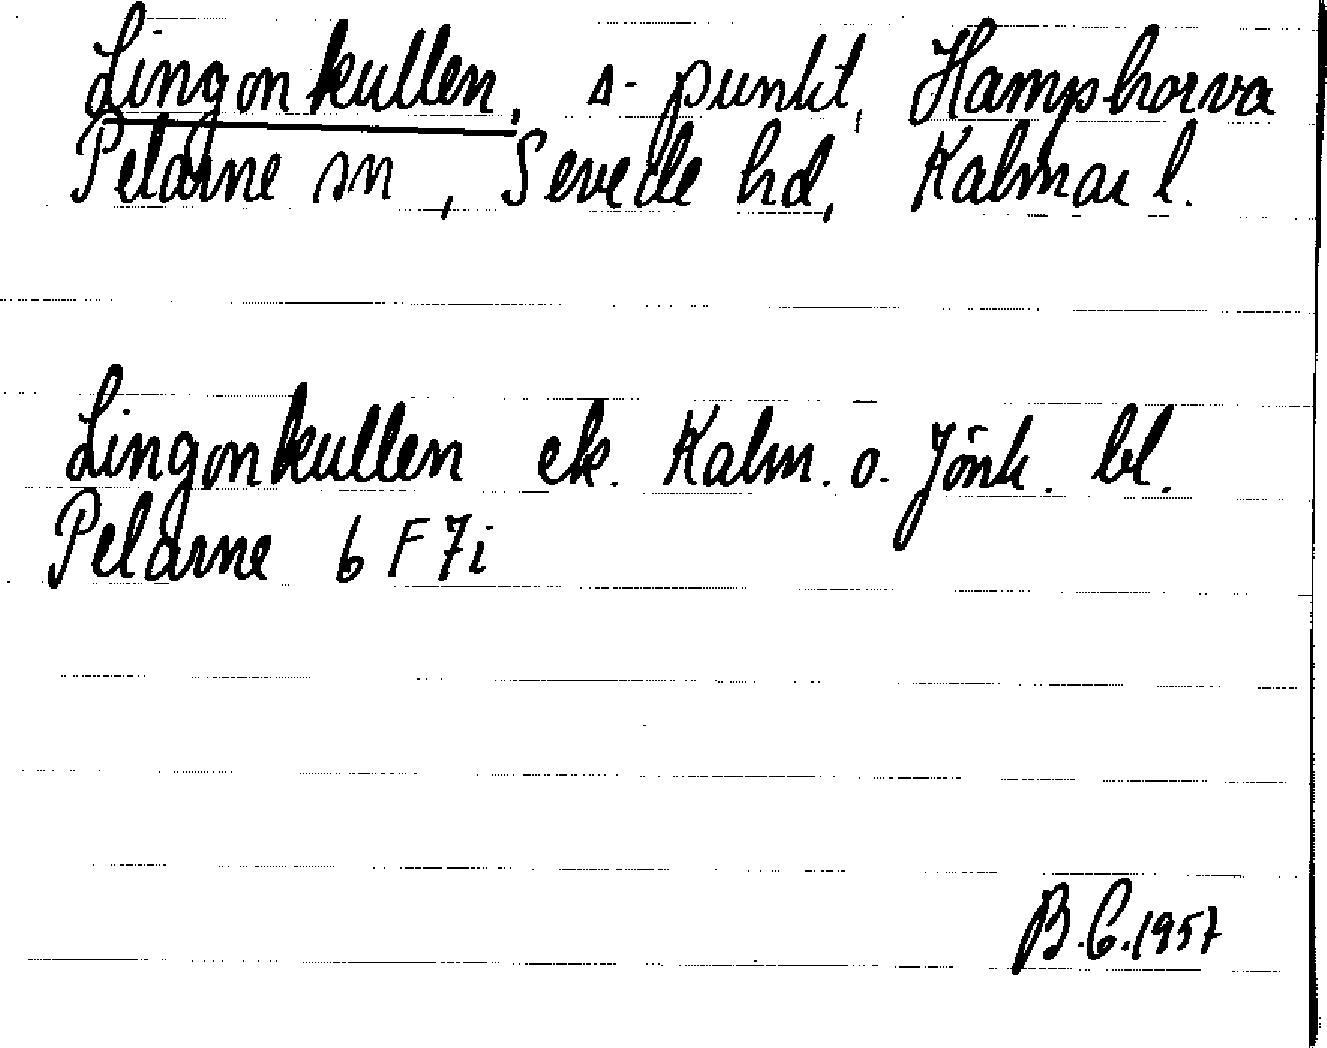 Lingonkullen, Δ-punkt, Hamphorva
Pelarne sn, Sevede hd, Kalmar l.
Lingonkullen ek. Kalm. o. Jönk. bl.
Pelarne 6 F 7i
B.C. 1957